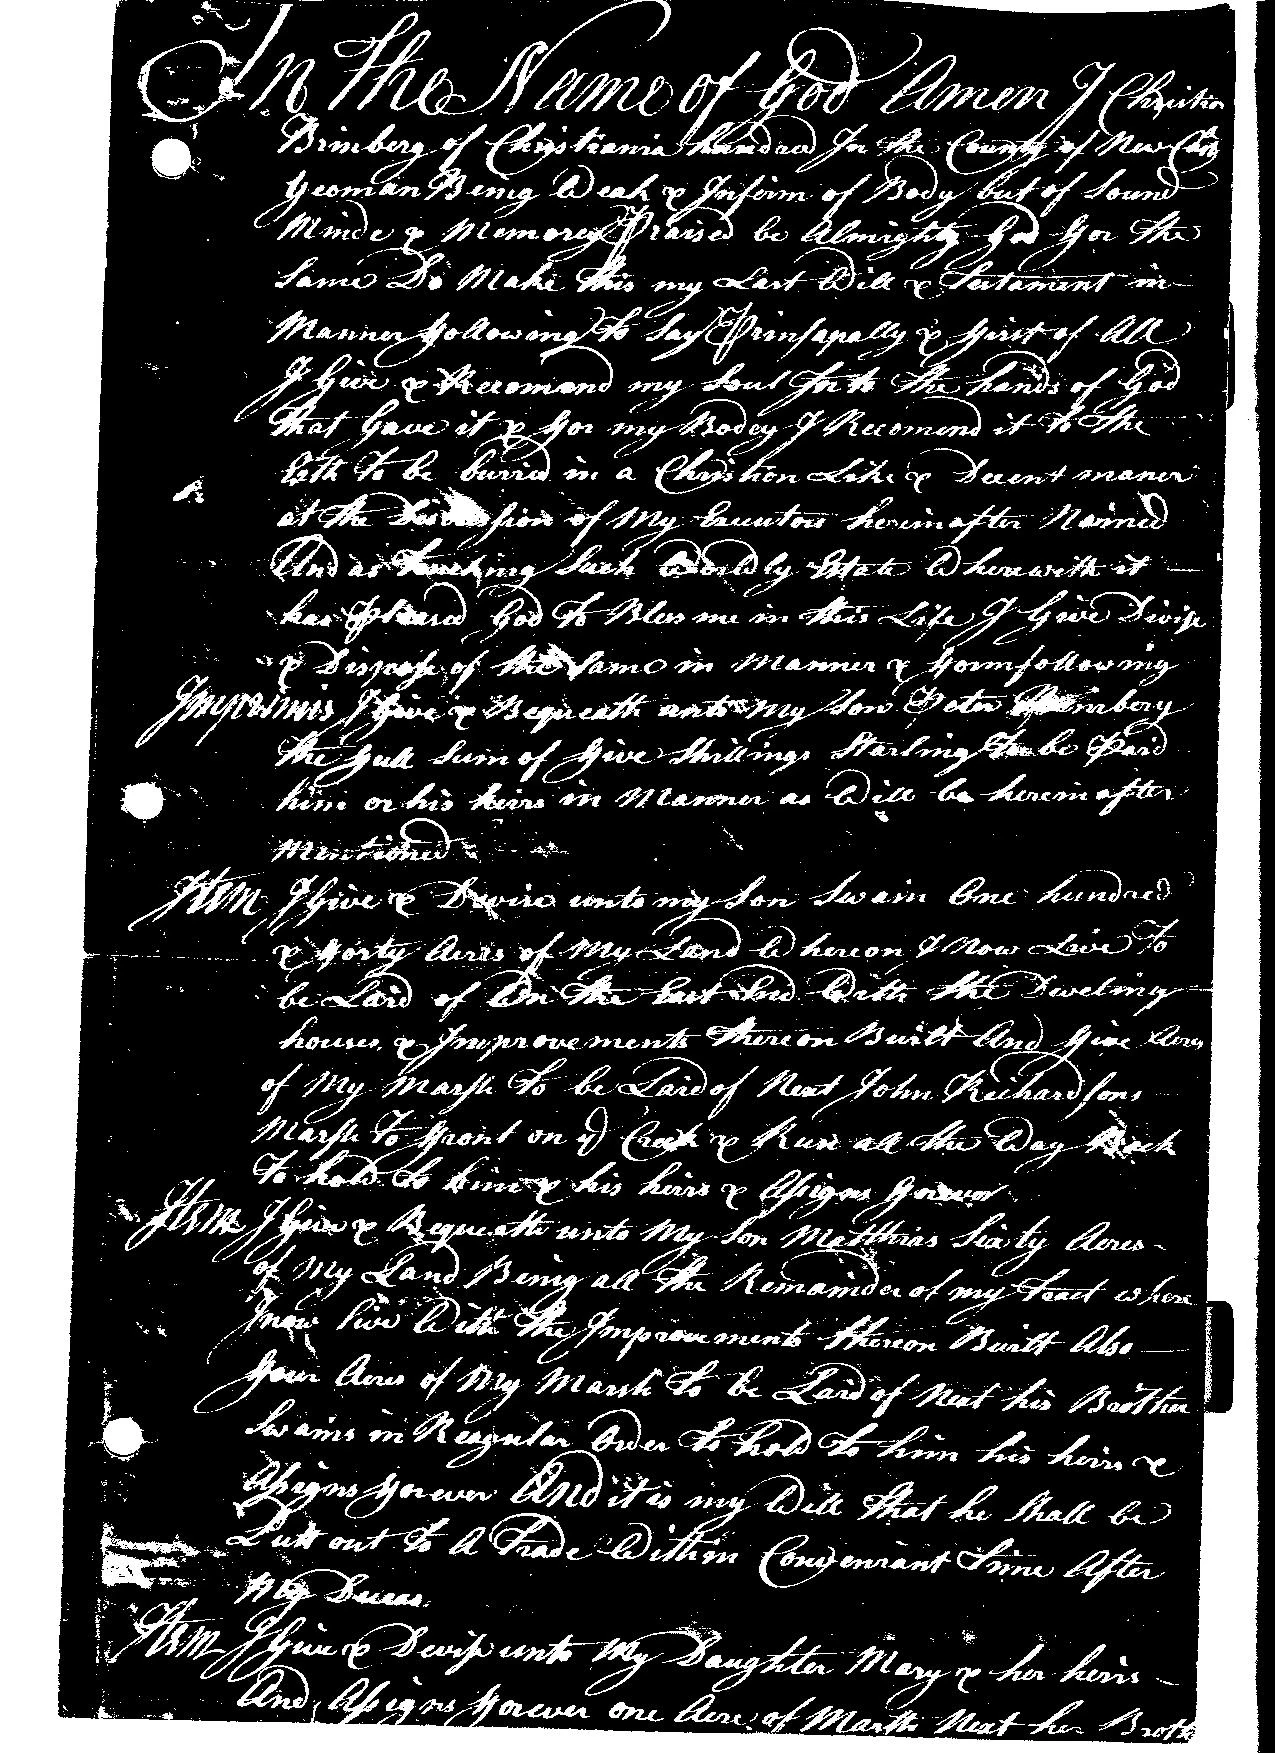 In the Name of God Amen I Christion
Brinberg of Christiania hundred In the County of New Cas
Yeoman Being Weak & Infirm of Body but of Sound
Minde & Memorey Praised be Almighty God For the
Same Do Make this my Last Will & Testament in
Manner Following To Say Prinsapally & First of All
I Give & Recomend my Soul Into the hands of God
that Gave it & For my Bodey I Recomend it to the
Erth To be buried in a Christion Like & Decent maner
at the of My Executors hereinafter Naimed
And as touching Such Worldly Estate Wherewith it
has pleased God To Bless me in this Life I Give Divise
& Dispose of the Same in Manner & Form following
Imprimis I Give & Bequeath unto My Son Peter Brinberg
the Full Sum of Five Shillings Starling To be Paid
him or his heirs in Manner as Will be hereinafter
Mentioned
Item I Give & Devise unto my Son Swain One hundred
& Forty Acres of My Land Whereon I Now Live To
be Laid of On the East End With the Dweling
houses & Improvements thereon Built And Five Acres
of My Marsh To be Laid of Next John Richardsons
Marsh To Front on ye Creek & Run all the Way Back
To hold to him & his heirs & Assigns Forever
Item I Give & Bequeath unto My Son Matthias Sixty Acres
of My Land Being all the Remainder of my tract where
I now Live With the Improvements thereon Built Also
Four Acres of My Marsh To be Laid of Next his Brother
Swains in Reagular Order To hold To him his heirs &
Assigns Forever And it is my Will that he Shall be
Putt out To A Trade Within Convenient Time After
My Deceas
Item I Give & Devise unto My Daughter Mary & her heirs
And Assigns Forever one Acre of Marsh Next her Broth